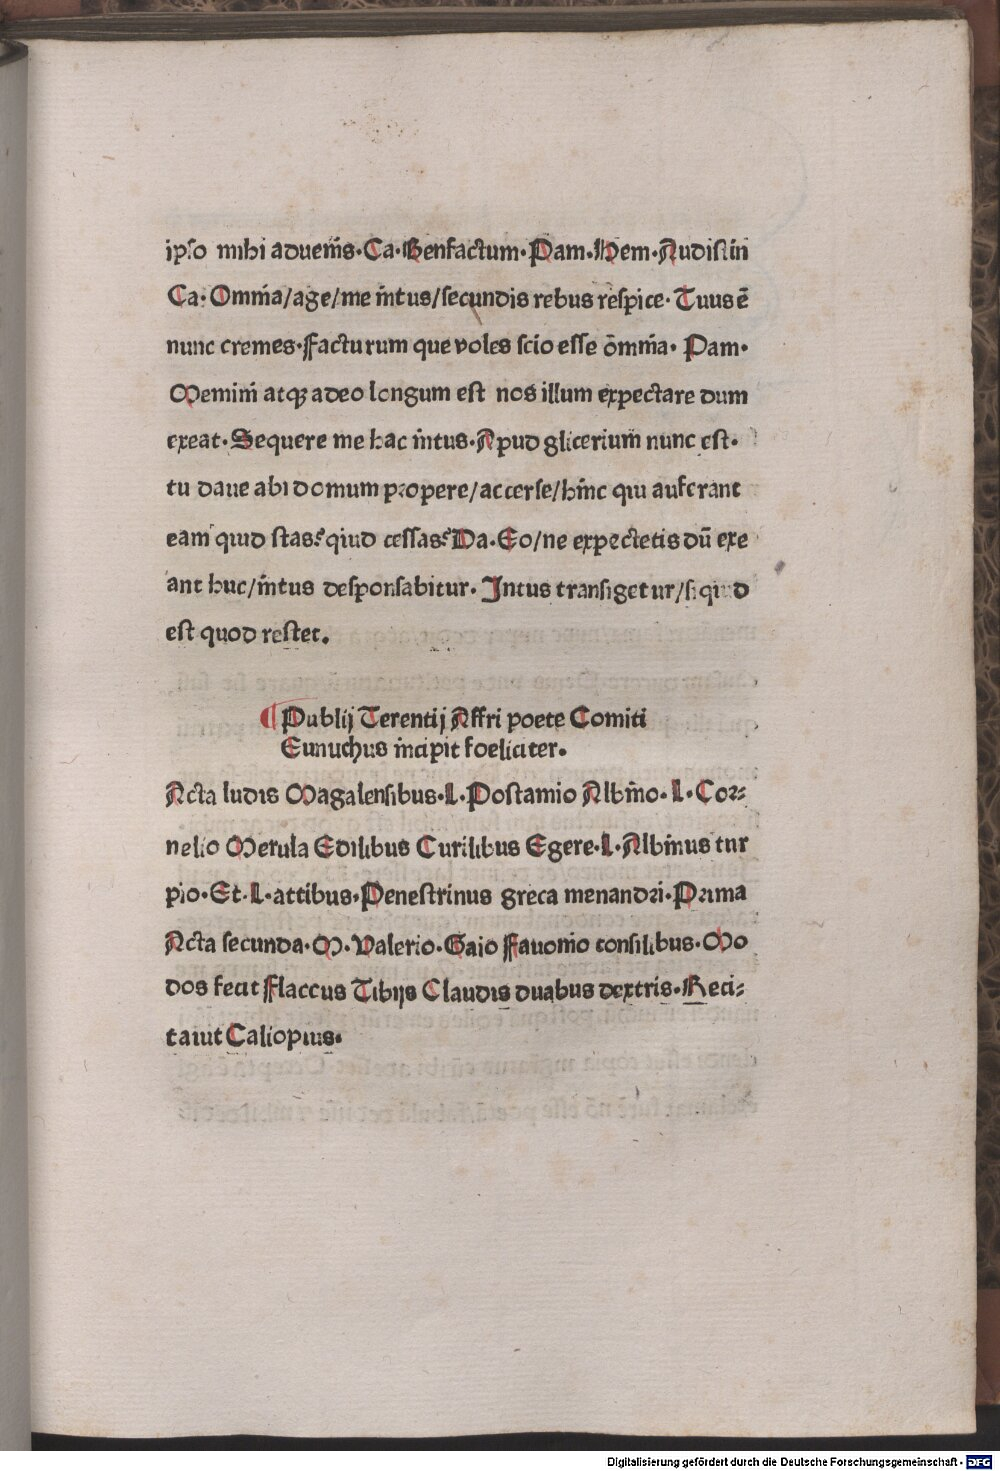 ipſo mihi aduenis·Ca·Benfactum·Pam·Hem·Audistin
Ca·Omnia/age/me intus/secundis rebus respice·Tuus ē
nunc cremes·Facturum que voles scio esse ōmnia· Pam·
Memini atqꝫ adeo longum est nos illum expectare dum
exeat·Sequere me hac intus·Apud glicerium nunc est·
tu daue abi domum propere/accerse/hinc qui auferant
eam quid stas? quid cessas? Da·Eo/ne expectetis dū exe
ant huc/intus desponsabitur· Intus transigetur/si quid
est quod restet.
¶ Publij Terentij Affri poete Comiti
Eunuchus incipit foeliciter.
Acta ludis Magalensibus·L·Postamio Albino·L·Cor⸗
nelio Merula Edilibus Curilibus Egere·L·Albinus tur
pio·Et·L·attibus·Penestrinus greca menandri·Prima
Acta secunda·M·Valerio·Gaio Fauonio consilibus·Mo
dos fecit Flaccus Tibijs Claudis duabus dextris·Reci⸗
tauit Caliopius.
Digitalisierung gefördert durch die Deutsche Forschungsgemeinschaft - DFG